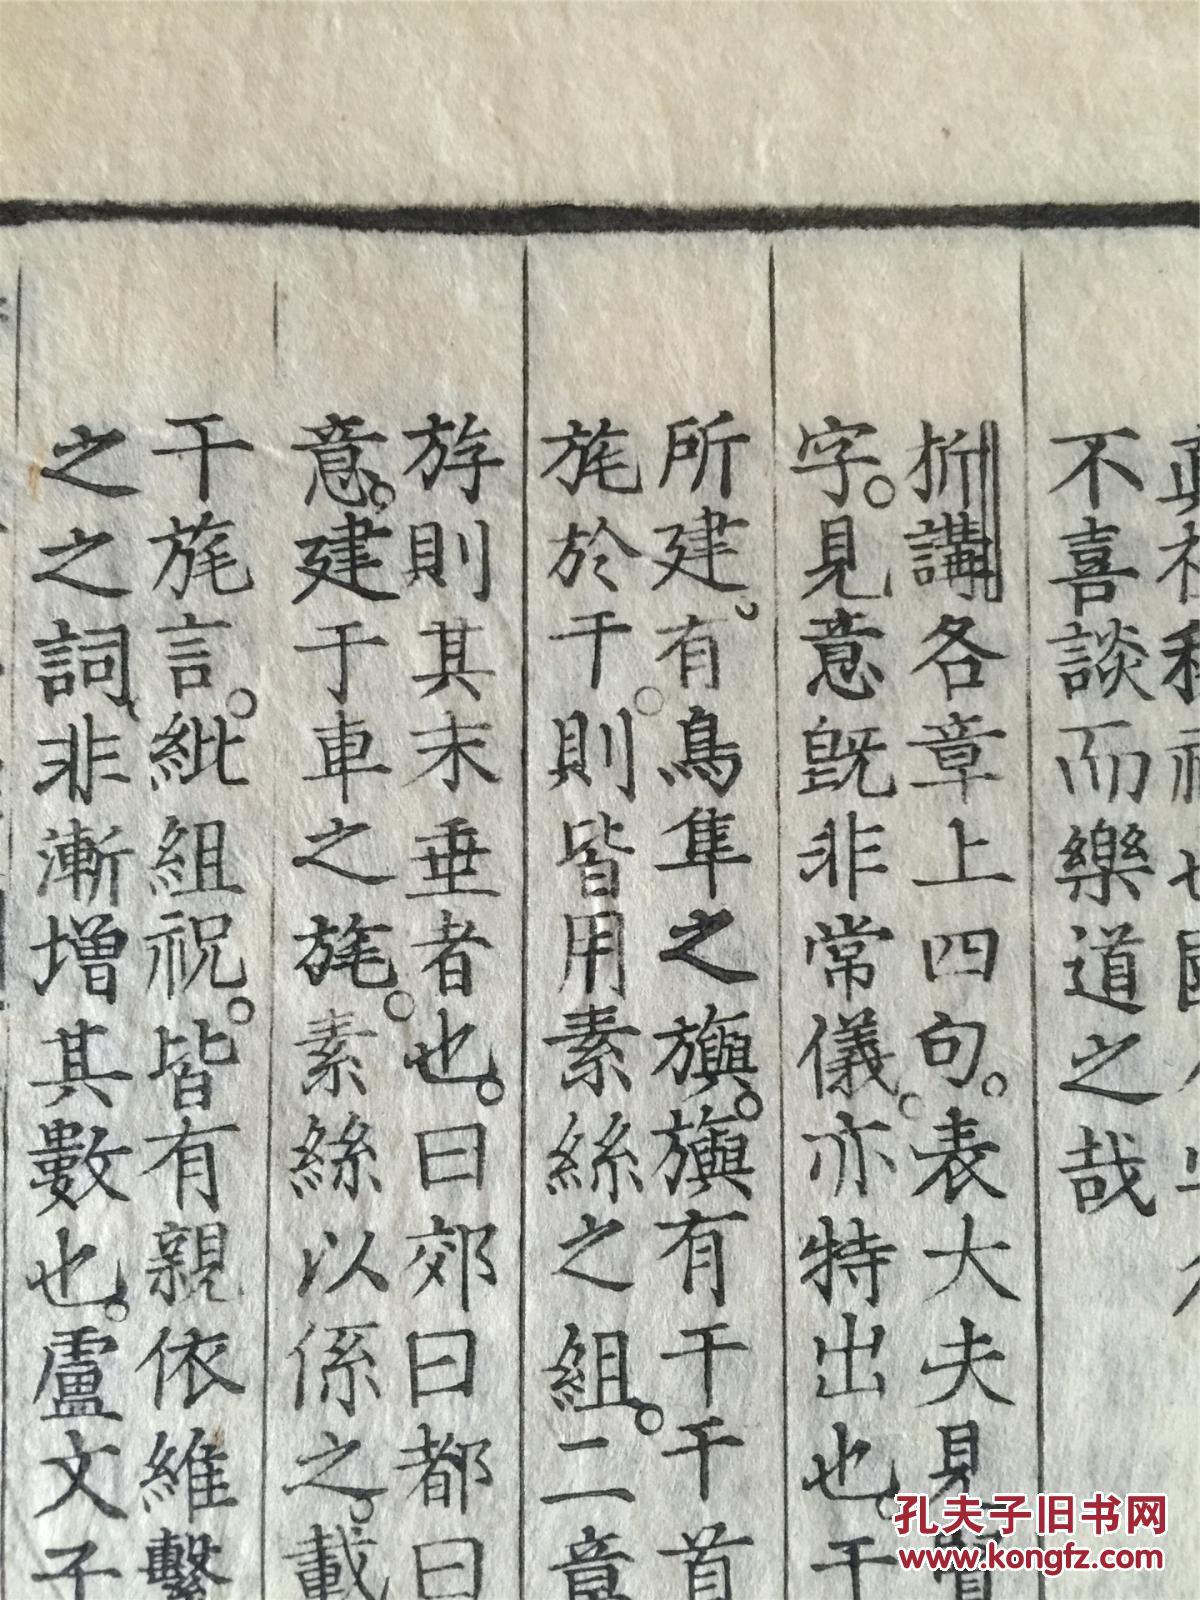 不喜談而樂道之哉
析講各章上四句。表大夫見賢
字。見意旣非常儀。亦特出也。干
所建。有鳥隼之旟。旟有干干首
旄於干。則皆用素絲之組。二章
斿則其末垂者也。曰郊曰都曰
意。建于車之旄。素絲以係之。載
干旄言。紕組祝。皆有親依維繫
之之詞、非漸增其數也。盧文子
孔夫子旧书网
www.kongfz.com